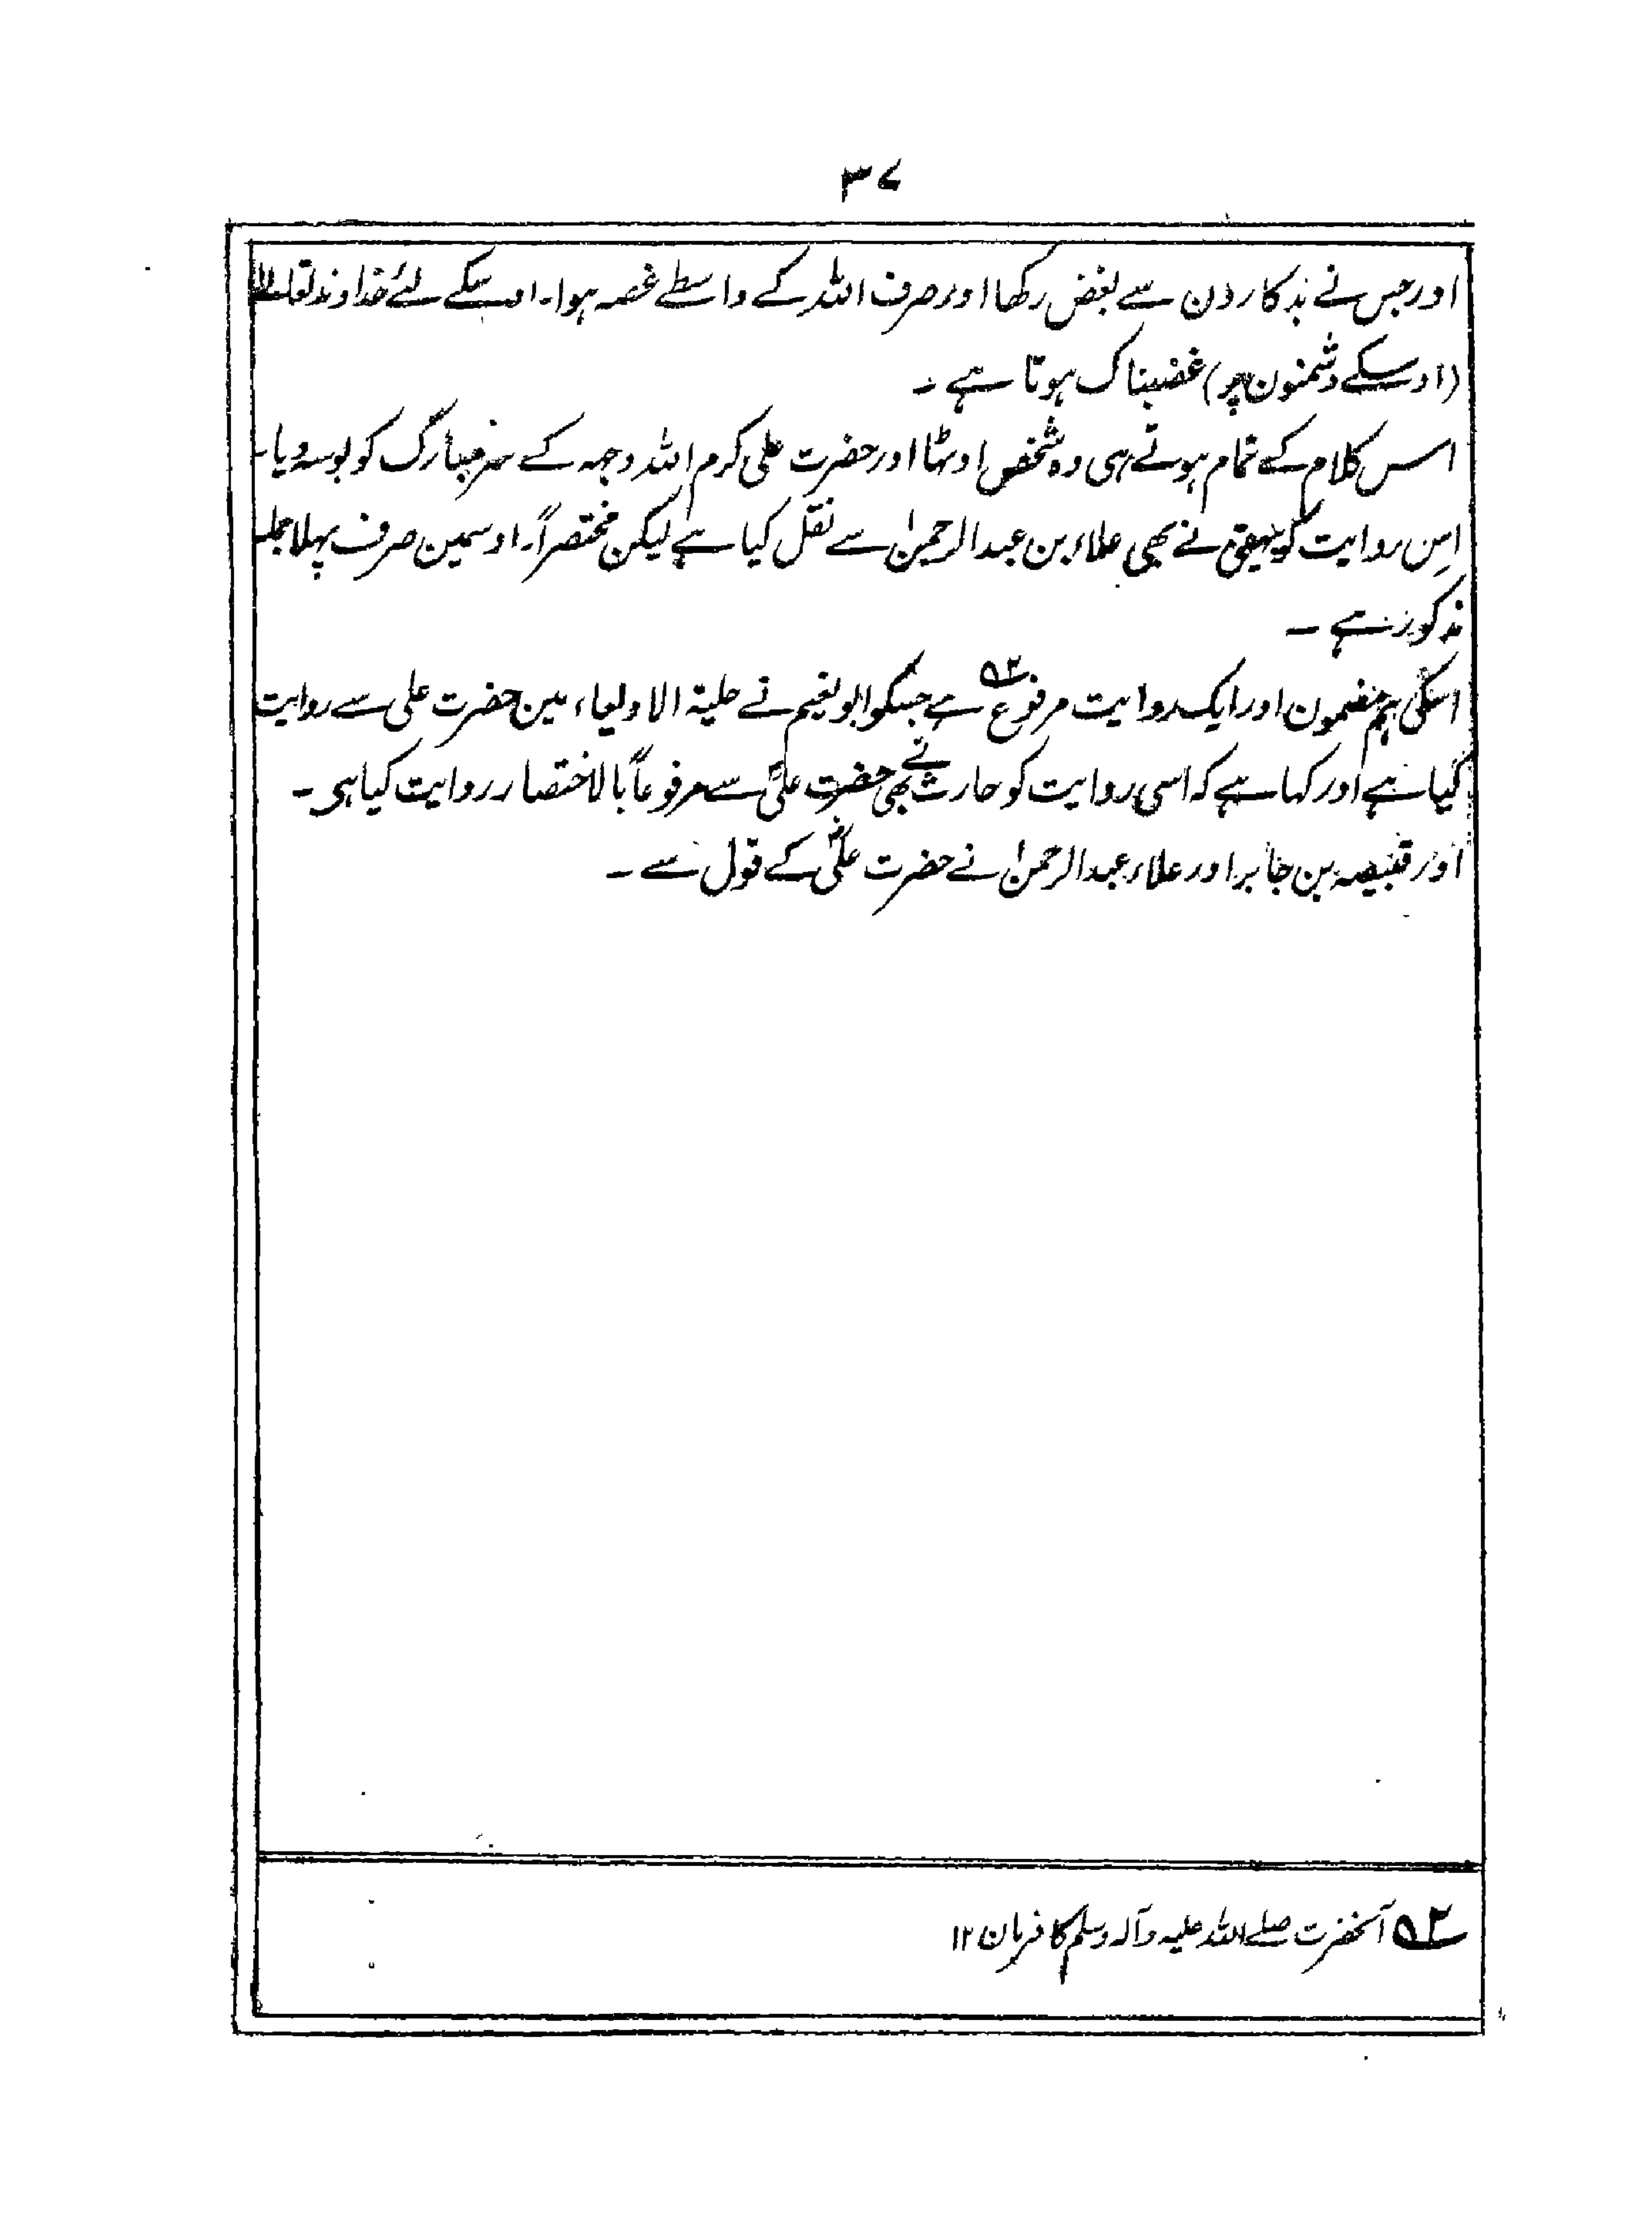 ۳۷
اور جس نے بدکارون سے بغض رکھا اور صرف اللہ کے واسطے غصہ ہوا۔ اوسکے لئے خداوند تعالےٰ
(اوسکے دشمنون پر) غضبناک ہوتا ہے ۔
اس کلام کے تمام ہوتے ہی وہ شخص اوٹھا اور حضرت علی کرم اللہ وجہہ کے سر مبارک کو بوسہ دیا۔
اِس روایت کو بیہقی نے بھی علاء بن عبدالرحمنٰ سے نقل کیا ہے لیکن مختصراً۔ اوسمین صرف پہلا جملہ
مذکور ہے ۔
اسکی ہم مضمون اور ایک روایت مرفوع ۵۲ ہے جسکو ابو نعیم نے حلیۃ الاولیاء مین حضرت علی سے روایت
کیا ہے اور کہا ہے کہ اسی روایت کو حارث نے بھی حضرت علیؓ سے مرفوعاً بالاختصار روایت کیا ہی ۔
اور قبیصہ بن جابر اور علاء عبدالرحمنٰ نے حضرت علیؓ کے قول سے ۔
۵۲ آنحضرت صلے اللہ علیہ وآلہ وسلم کا فرمان ۱۲